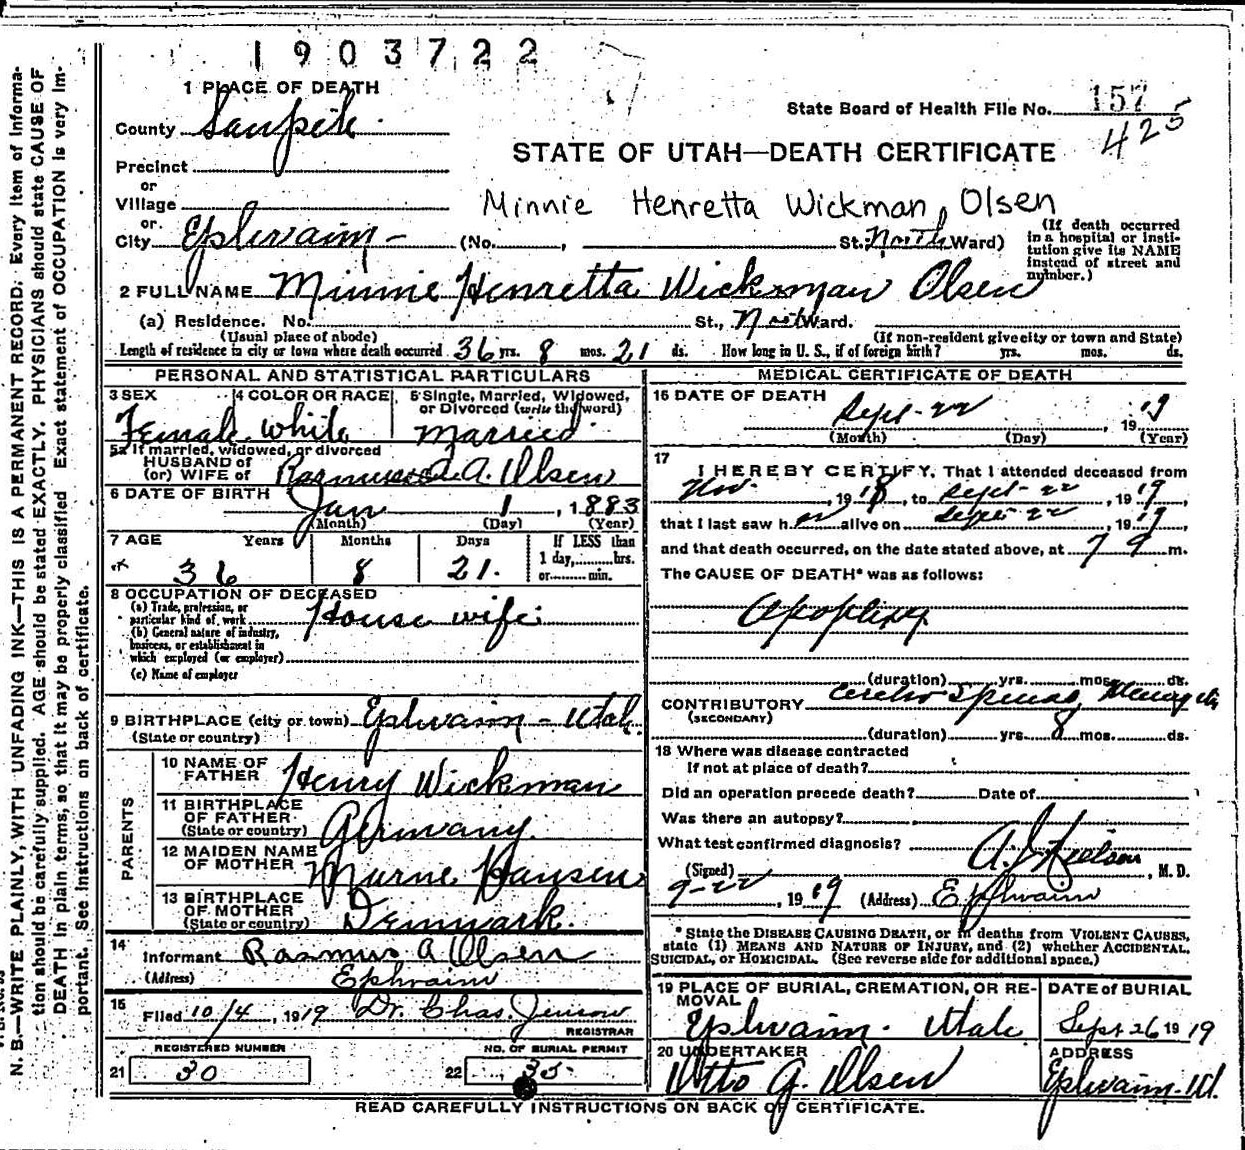 1903722
1 PLACE OF DEATH
State Board of Health File No. 157
425
County Sanpete
STATE OF UTAH—DEATH CERTIFICATE
Precinct
or
Village
Minnie Henretta Wickman, Olsen
or
City Ephraim (No. , St.; North Ward)
(If death occurred in a hospital or institution give its NAME instead of street and number.)
2 FULL NAME Minnie Henretta Wickman Olsen
(a) Residence. No. St., Ward.
(Usual place of abode) (If non-resident give city or town and State)
Length of residence in city or town where death occurred 36 yrs. 8 mos. 21 ds. How long in U. S., if of foreign birth? yrs. mos. ds.
PERSONAL AND STATISTICAL PARTICULARS
3 SEX 4 COLOR OR RACE 5 Single, Married, Widowed, or Divorced (write the word)
Female White Married
5a If married, widowed, or divorced
HUSBAND of
(or) WIFE of Rasmus A. Olsen
6 DATE OF BIRTH Jan 1, 1883
(Month) (Day) (Year)
7 AGE Years Months Days If LESS than
1 day, hrs.
or min.
36 8 21.
8 OCCUPATION OF DECEASED
(a) Trade, profession, or
particular kind of work House wife
(b) General nature of industry,
business, or establishment in
which employed (or employer)
(c) Name of employer
9 BIRTHPLACE (city or town) Ephraim - Utah.
(State or country)
PARENTS
10 NAME OF
FATHER Henry Wickman
11 BIRTHPLACE
OF FATHER
(State or country) Germany.
12 MAIDEN NAME
OF MOTHER Hansen
13 BIRTHPLACE
OF MOTHER
(State or country) Denmark.
14
Informant Rasmus A Olsen
(Address) Ephraim
15
Filed 10/4, 1919 Dr. Chas.
REGISTRAR
REGISTERED NUMBER NO. OF BURIAL PERMIT
21 30 22 35
MEDICAL CERTIFICATE OF DEATH
16 DATE OF DEATH
Sept-22 1919
(Month) (Day) (Year)
17
I HEREBY CERTIFY, That I attended deceased from
Nov. , 1918, to Sept-22, 1919,
that I last saw her alive on Sept 22, 1919,
and that death occurred, on the date stated above, at 7 m.
The CAUSE OF DEATH* was as follows:
Apoplexy
(duration) yrs. mos. ds.
CONTRIBUTORY Cerebro Spinal
(SECONDARY)
(duration) yrs. 8 mos. ds.
18 Where was disease contracted
If not at place of death?
Did an operation precede death? Date of
Was there an autopsy?
What test confirmed diagnosis?
(Signed) A. J. Nielson, M. D.
9-22, 1919 (Address) Ephraim
* State the DISEASE CAUSING DEATH, or in deaths from VIOLENT CAUSES,
state (1) MEANS AND NATURE OF INJURY, and (2) whether ACCIDENTAL,
SUICIDAL, or HOMICIDAL. (See reverse side for additional space.)
19 PLACE OF BURIAL, CREMATION, OR RE-
MOVAL
DATE of BURIAL
Ephraim - Utah Sept 26 1919
20 UNDERTAKER ADDRESS
Otto G. Olsen Ephraim - Ut.
READ CAREFULLY INSTRUCTIONS ON BACK OF CERTIFICATE.
N. B.—WRITE PLAINLY, WITH UNFADING INK—THIS IS A PERMANENT RECORD. Every item of informa-
tion should be carefully supplied. AGE should be stated EXACTLY. PHYSICIANS should state CAUSE OF
DEATH in plain terms, so that it may be properly classified. Exact statement of OCCUPATION is very im-
portant. See instructions on back of certificate.